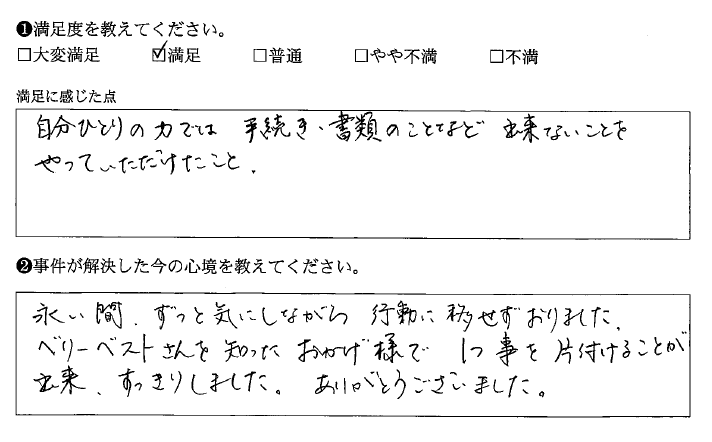 ❶満足度を教えてください。
□大変満足 ☑満足 □普通 □やや不満 □不満
満足に感じた点
自分ひとりの力では 手続き、書類のことなど 出来ないことを
やっていただけたこと.
❷事件が解決した今の心境を教えてください。
永い間、ずっと気にしながら 行動に移せずおりました.
ベリーベストさんを知った おかげ様で 1つ事を片付けることが
出来、すっきりしました。 ありがとうございました。